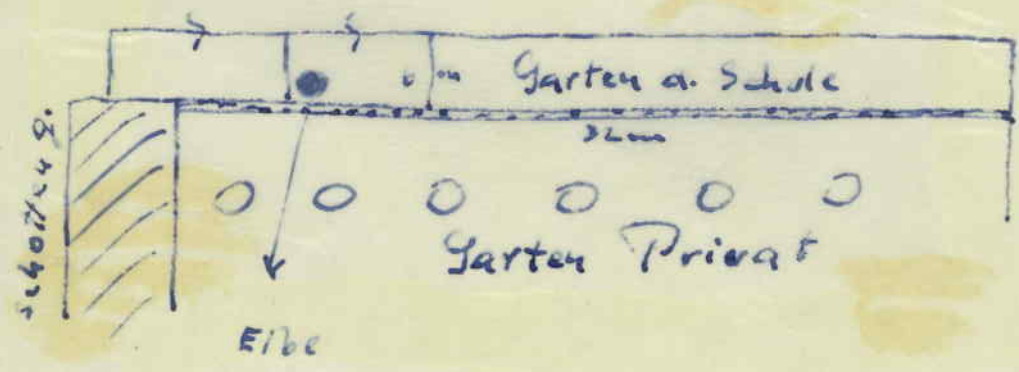 5 5
Garten a. Schule
32 m
Schottg.
Garten Privat
Eibe